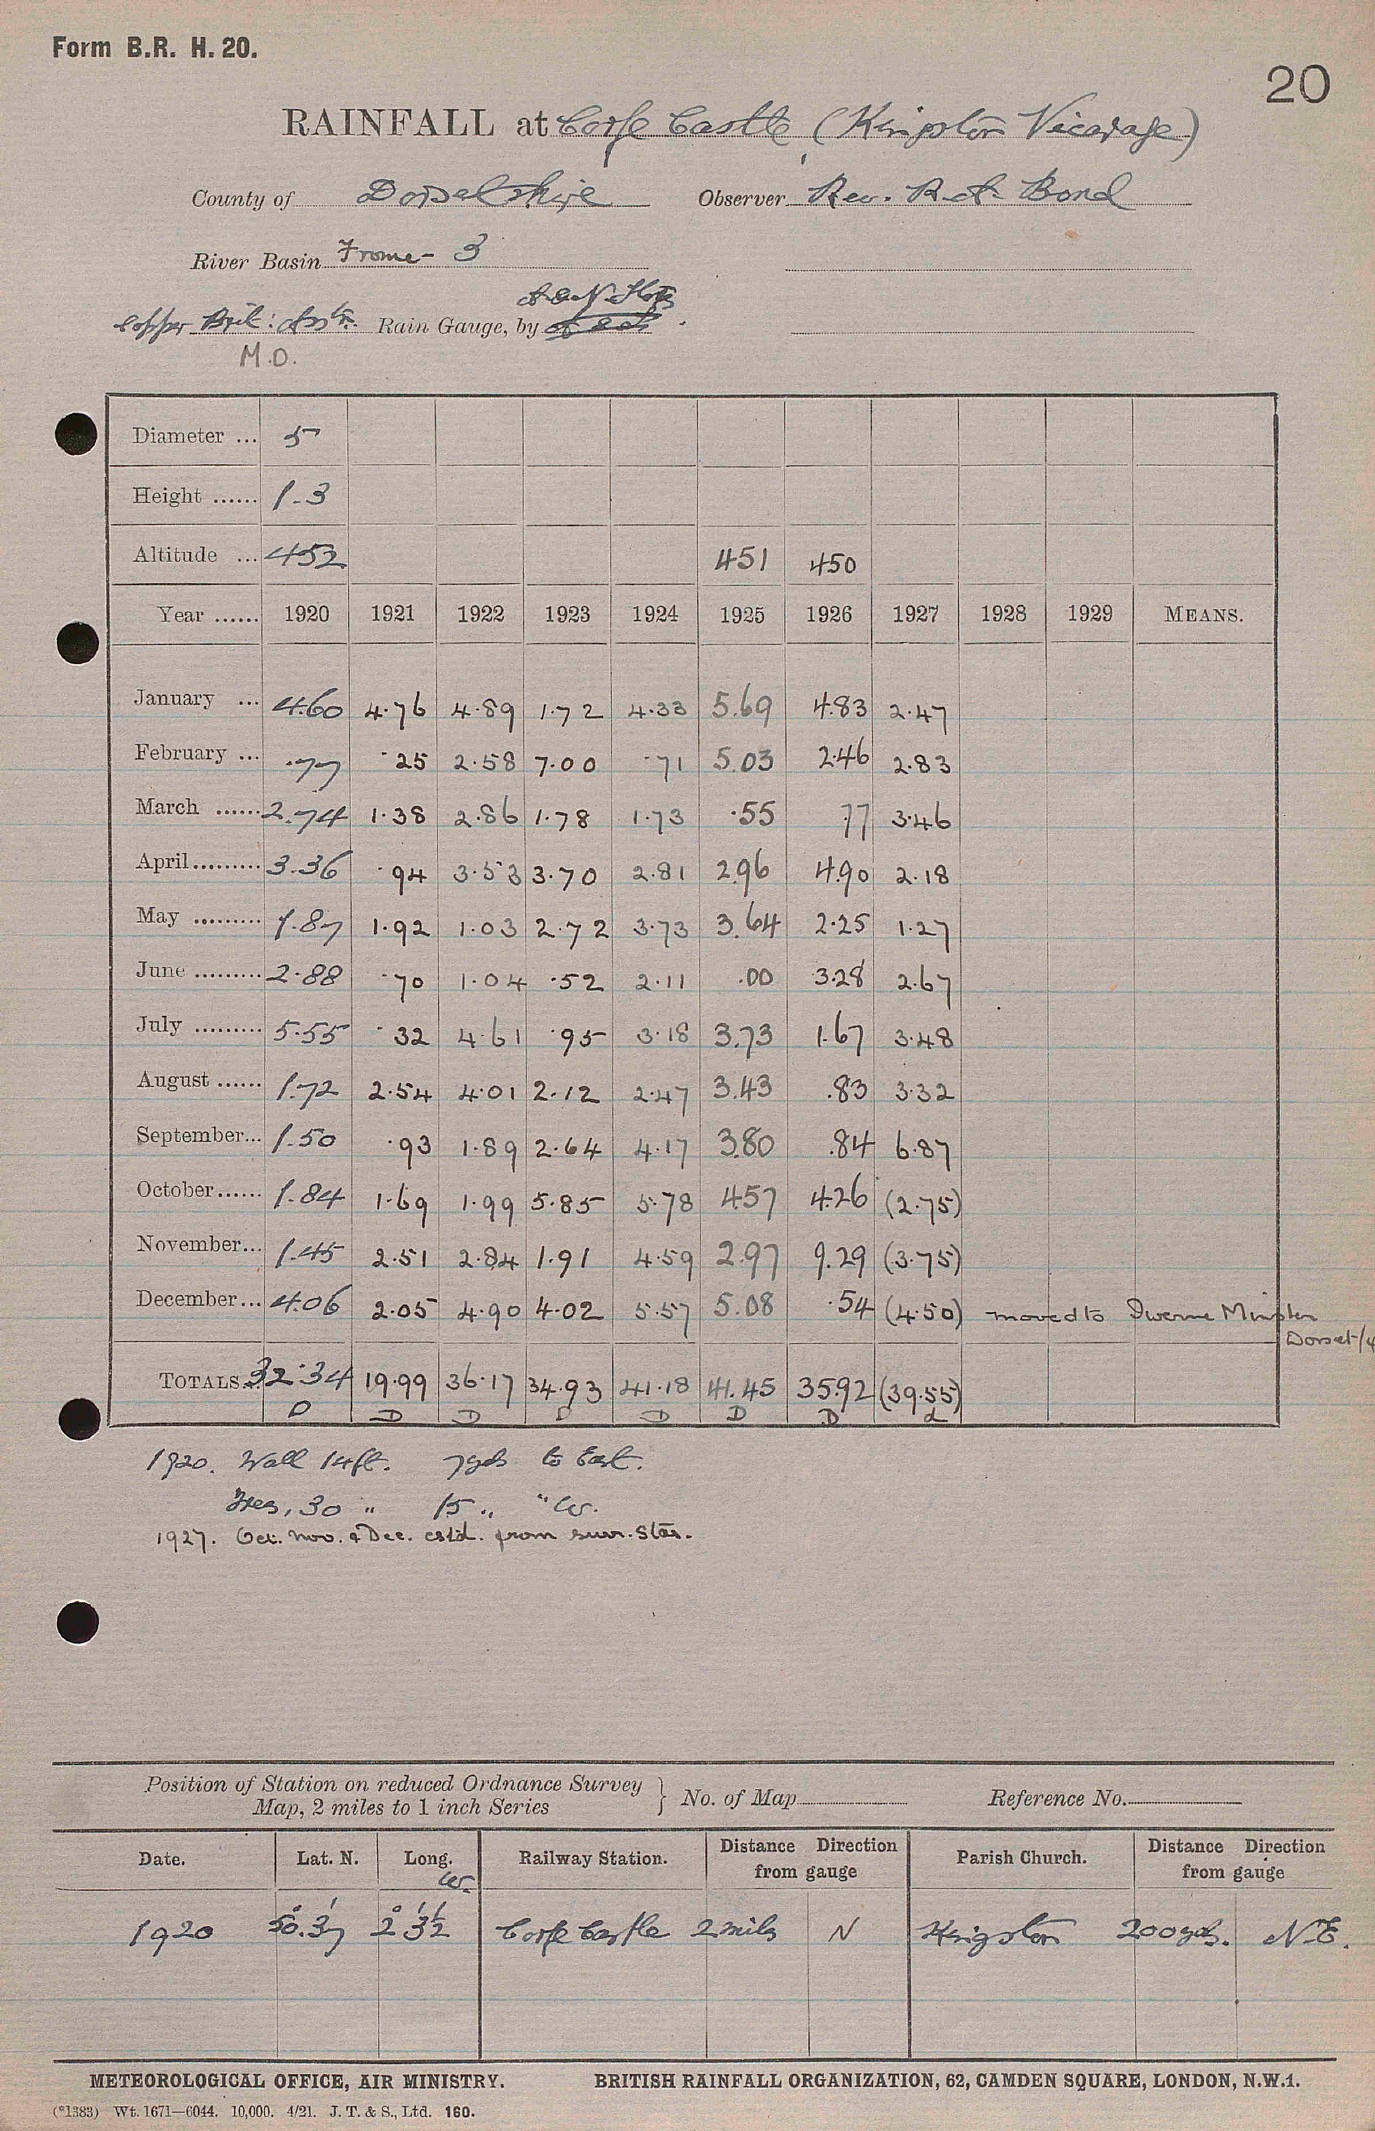 Form B.R. H. 20.
20
RAINFALL at Corfe Castle (Kingston Vicarage)
County of Dorsetshire Observer Rev. R. A. Bond
River Basin Frome - 3
Copper Brit: Assn. Rain Gauge, by
M.O.
Diameter ... 5
Height ...... 1-3
Altitude ... 452 451 450
Year ...... 1920 1921 1922 1923 1924 1925 1926 1927 1928 1929 MEANS.
January ... 4.60 4.76 4.89 1.72 4.33 5.69 4.83 2.47
February ... .77 .25 2.58 7.00 .71 5.03 2.46 2.83
March ...... 2.74 1.38 2.86 1.78 1.73 .55 .77 3.46
April......... 3.36 .94 3.53 3.70 2.81 2.96 4.90 2.18
May ......... 1.87 1.92 1.03 2.72 3.73 3.64 2.25 1.27
June ......... 2.88 .70 1.04 .52 2.11 .00 3.28 2.67
July ......... 5.55 .32 4.61 .95 3.18 3.73 1.67 3.48
August ...... 1.72 2.54 4.01 2.12 2.47 3.43 .83 3.32
September... 1.50 .93 1.89 2.64 4.17 3.80 .84 6.87
October...... 1.84 1.69 1.99 5.85 5.78 4.57 4.26 (2.75)
November... 1.45 2.51 2.84 1.91 4.59 2.97 9.29 (3.75)
December... 4.06 2.05 4.90 4.02 5.57 5.08 .54 (4.50) moved to Iwerne Minster
Dorset/4
TOTALS... 32.34 19.99 36.17 34.93 41.18 41.45 35.92 (39.55)
D D D D D D D L
1920. Wall 14ft. 7yds to East.
Trees, 30 " 15 " " W.
1927. Oct. Nov. & Dec. estd. from surr. Stas.
Position of Station on reduced Ordnance Survey
Map, 2 miles to 1 inch Series } No. of Map Reference No.
Date. Lat. N. Long. W. Railway Station. Distance Direction from gauge Parish Church. Distance Direction from gauge
1920 50° 37' 2° 3½' Corfe Castle 2 miles N Kingston 200 yds. N.E.
METEOROLOGICAL OFFICE, AIR MINISTRY. BRITISH RAINFALL ORGANIZATION, 62, CAMDEN SQUARE, LONDON, N.W.1.
(*1383) Wt. 1671—6044. 10,000. 4/21. J. T. & S., Ltd. 160.